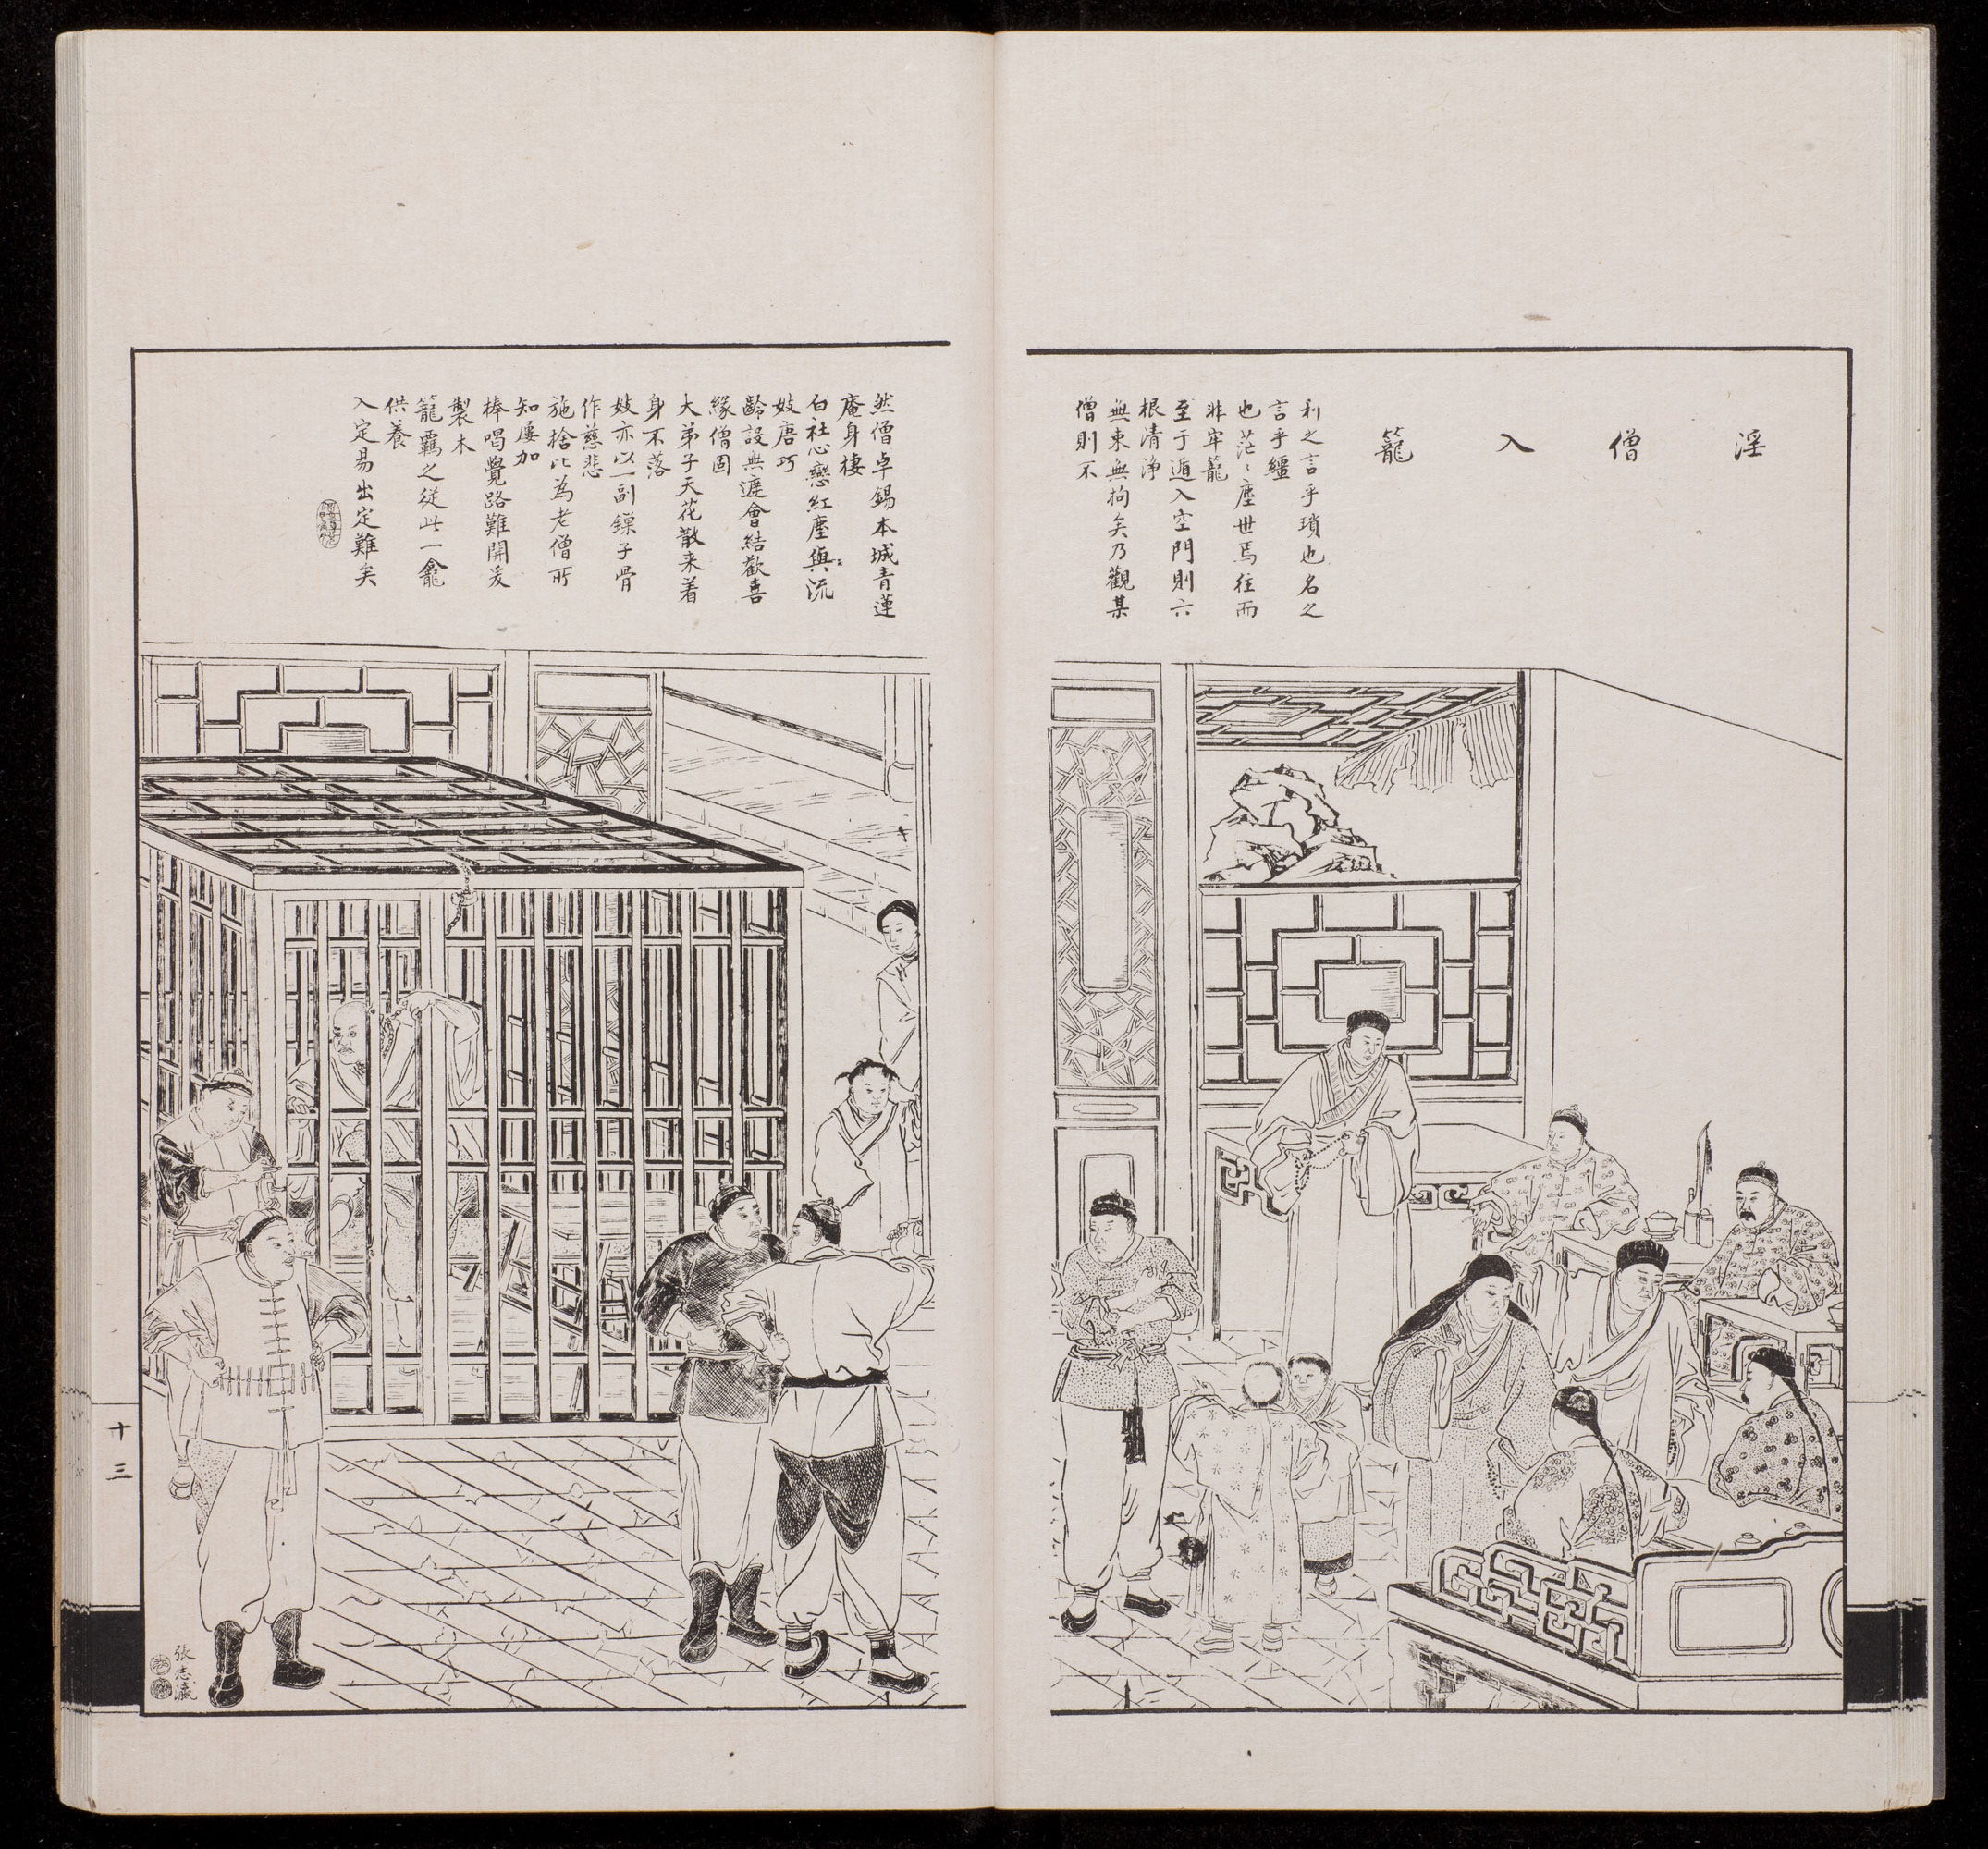 淫僧入籠
利之言乎瑣也名之
言乎繮
也茫〻塵世焉往而
非牢籠
至于遁入空門則六
根清淨
無束無拘矣乃觀某
僧則不
然僧卓錫本城青蓮
庵身棲
白社心戀紅塵與流
妓唐巧
齡設無遮會結歡喜
緣僧固
大弟子天花散来着
身不落
妓亦以一副鏁子骨
作慈悲
施捨比為老僧所
知屢加
棒喝覺路難開爰
製木
籠羈之従此一龕
供養
入定易出定難矣
張志瀛
十三